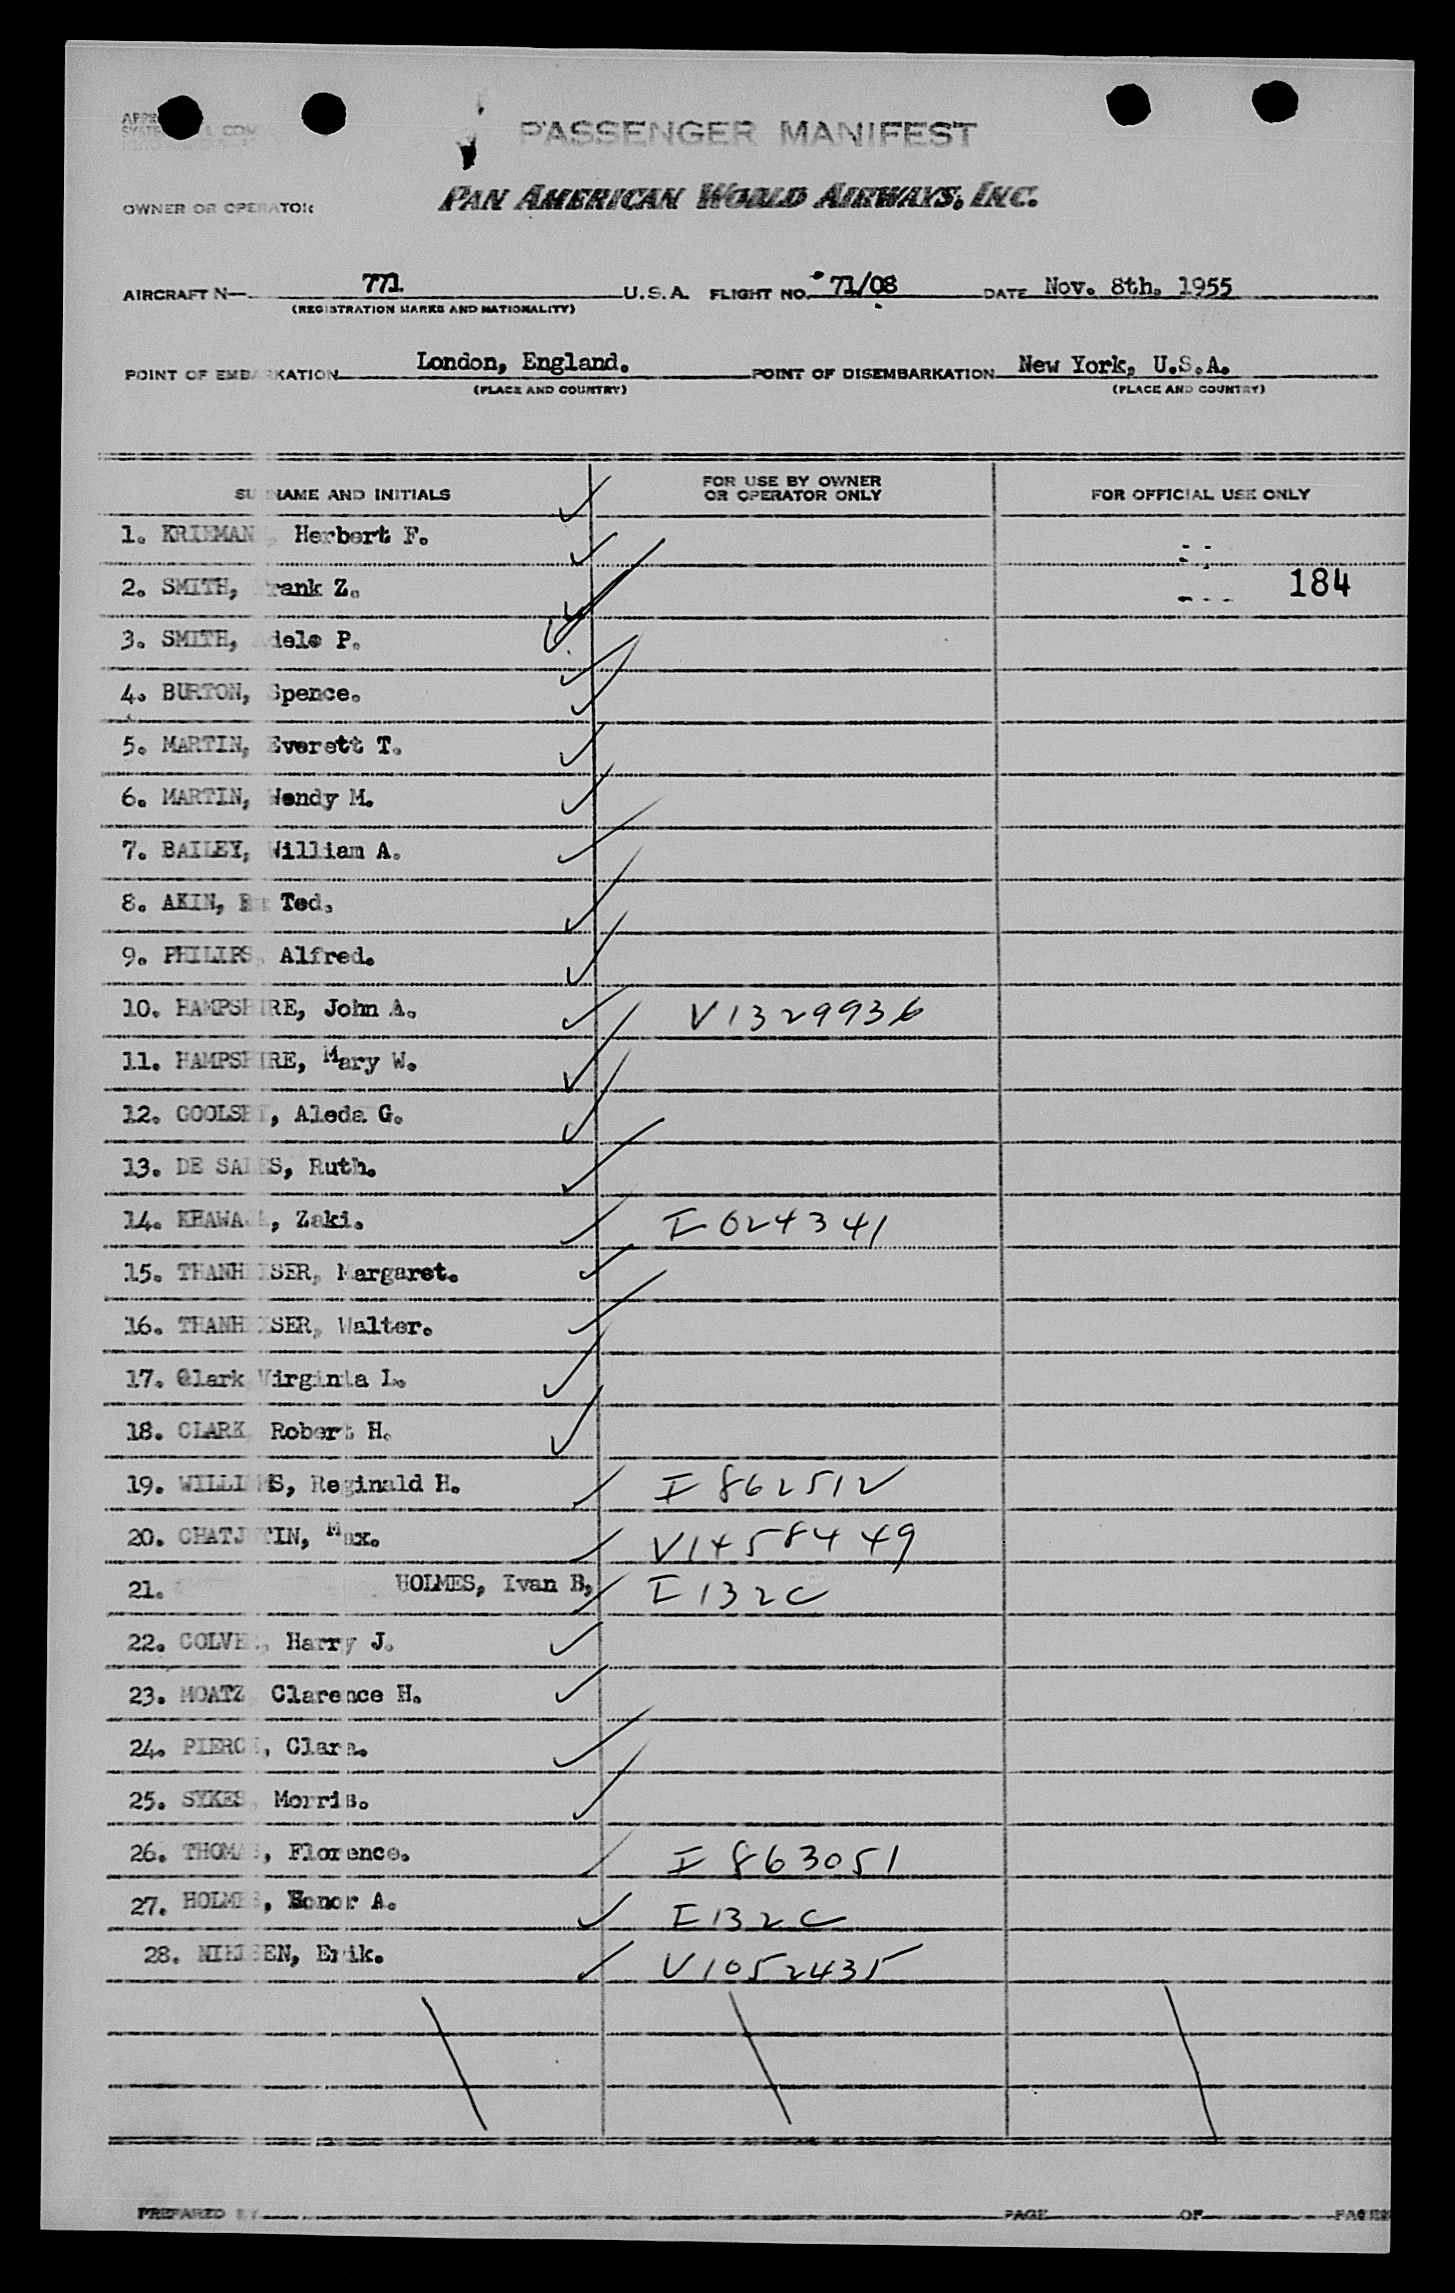 PASSENGER MANIFEST
OWNER OR OPERATOR PAN AMERICAN WORLD AIRWAYS, INC.
AIRCRAFT N— 771 U.S.A. FLIGHT NO. 71/08 DATE Nov. 8th. 1955
(REGISTRATION MARKS AND NATIONALITY)
POINT OF EMBARKATION London, England. POINT OF DISEMBARKATION New York, U.S.A.
(PLACE AND COUNTRY) (PLACE AND COUNTRY)
SURNAME AND INITIALS FOR USE BY OWNER OR OPERATOR ONLY FOR OFFICIAL USE ONLY
1. Herbert F.
2. SMITH, Frank Z. 184
3. SMITH, Adele P.
4. BURTON, Spence.
5. MARTIN, Everett T.
6. MARTIN, Wendy M.
7. BAILEY, William A.
8. AKIN, Ted.
9. PHILIPS, Alfred.
10. HAMPSHIRE, John A. V1329936
11. HAMPSHIRE, Mary W.
12. Aleda G.
13. DE SALES, Ruth.
14. KHAWAJA, Zaki. I 024341
15. Margaret.
16. Walter.
17. Clark Virginia L.
18. CLARK, Robert H.
19. WILLIAMS, Reginald H. I 862512
20. Max. V1458449
21. HOLMES, Ivan B, I 132C
22. COLVER, Harry J.
23. MOATZ, Clarence H.
24. PIERCE, Clara.
25. SYKES, Morris.
26. THOMAS, Florence. I 863051
27. HOLMES, Honor A. I132C
28. NIELSEN, Erik. V1052435
PREPARED BY PAGE OF PAGES